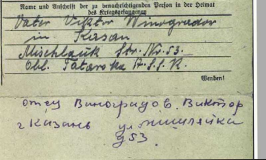 Name und Anschrift der zu benachrichtigenden Person in der Heimat
des Kriegsgefangenen
Vater Viktor Winogradow
in Kasan
Mischlauk Str. Nr. 53.
Obl. Tatarska A.S.S.R.
Werden!
отец Виноградов. Виктор
г Казань ул
д53.